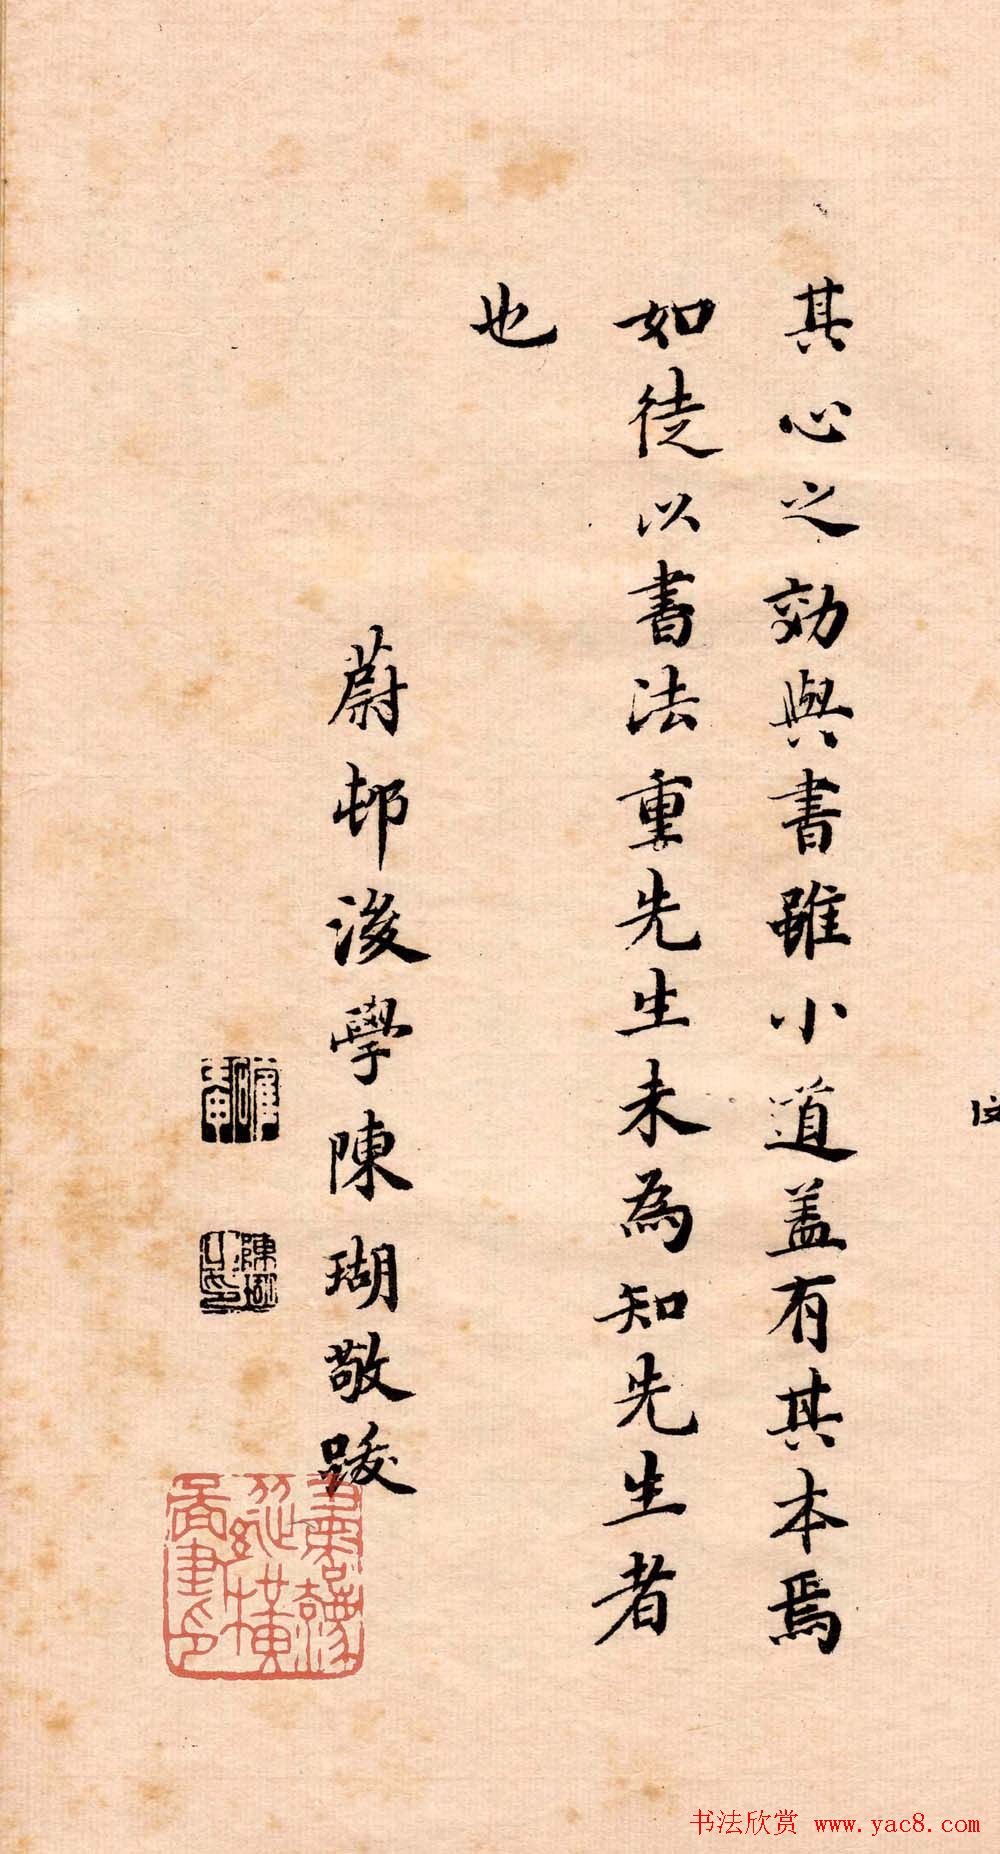 其心之効與書雖小道盖有其本焉
如徒以書法重先生未為知先生者
也
蔚邨後學陳瑚敬跋
书法欣赏 www.yac8.com